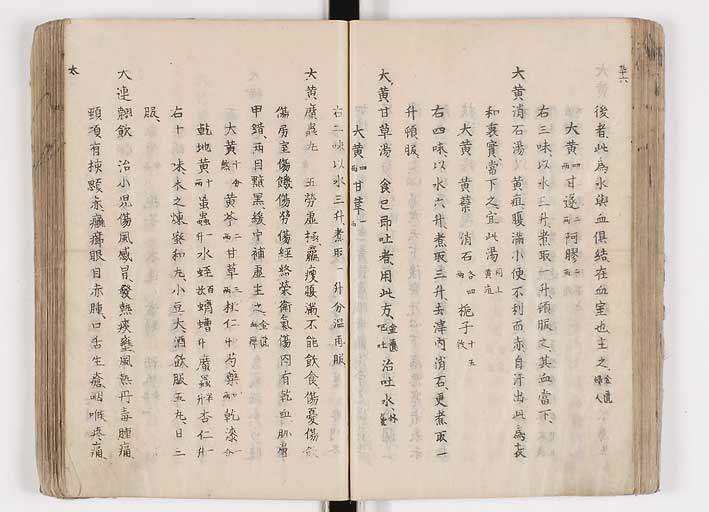 後者此為水與血俱結在血室也主之 金匱 婦人
大黄 四兩 甘遂 二兩 阿膠 二兩
右三味以水三升煮取一升頓服之其血當下
大黄消石湯 以黄疸腹滿小便不利而赤自汗出此為表
和裏實當下之宜此湯 同上 黄疸
大黄 黄蘗 消石 各四兩 梔子 十五枚
右四味以水六升煮取三升去滓內消石更煮取一
升頓服
大黄甘草湯 食已即吐者用此方 金匱 治吐水 外臺
大黄 四兩 甘草 一兩
右二味以水三升煮取一升分溫再服
大黄䗪蟲丸 五勞虚極羸瘦腹滿不能飲食傷憂傷飲
傷房室傷饑傷勞傷經絡榮衛氣傷內有乾血肌膚
甲錯兩目黯黑緩中補虚主之 金匱
大黄 十分 黄芩 二兩 甘草 三兩 桃仁 一升 芍藥 四兩 乾漆 一兩
乾地黄 十兩 蝱蟲 一升 水蛭 百枚 蠐螬 一升 䗪蟲 半升 杏仁 一升
右十味末之煉蜜和丸小豆大酒飲服五丸日三
服
大連翹飲 治小兒傷風感冒發熱痰壅風熱丹毒腫痛
頸項有核腮赤癰癤眼目赤腫口舌生瘡咽喉疼痛